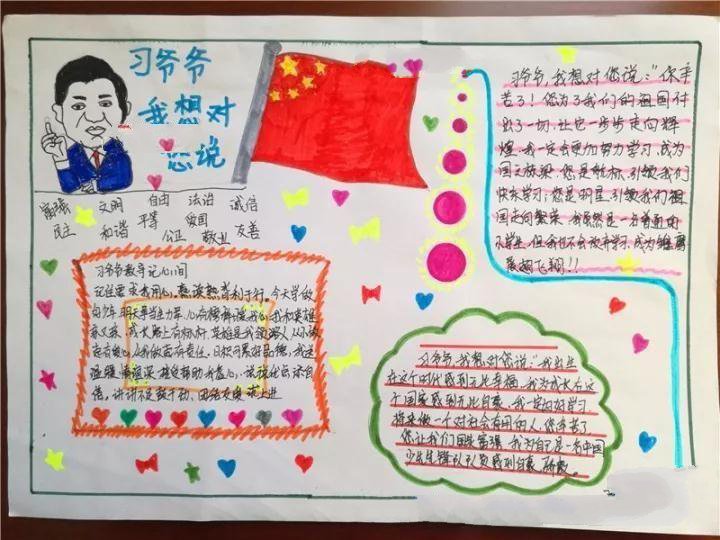 习爷爷
我想对
您说
富强 文明 自由 法治 诚信
民主 和谐 平等 公正 爱国 敬业 友善
习爷爷教导记心间
记住要求我用心,熟读熟背利于行。今天学做
自少年,明天争当生力军。心有榜样强我心,我和英雄
亲又亲。成长路上有标杆,英雄是我领路人。从小做
起有决心,从我做起有责任。日积月累好品德,
接受帮助我虚心,
倍,
习爷爷,我想对您说:“你辛
苦了!您为了我们的祖国付
出了一切,让它一步步走向辉
煌。我一定会更加努力学习,成为
国之栋梁。您是航标,引领我们
快乐学习;您是明星,引领我们祖
国走向繁荣。我虽然是一名普通的
小学生,但我也不会放弃学习,成为雄鹰
展翅飞翔!!
习爷爷,我想对您说:“我出生
在这个时代感到无比幸福,我为成长在这
个国家感到无比自豪,我一定好好学习
将来做一个对社会有用的人。您辛苦了
您让我们国家富强,我为自己是一名中国
少先生锋队队员感到自豪、骄傲。